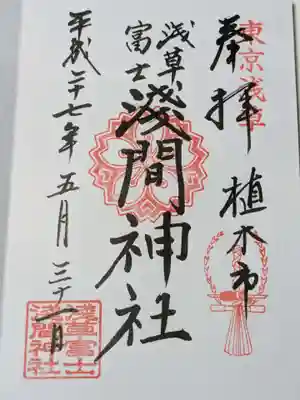 東京浅草
奉拝
植木市
浅草
富士
淺間神社
平成二十七年五月三十一日
浅草富士
浅間神社